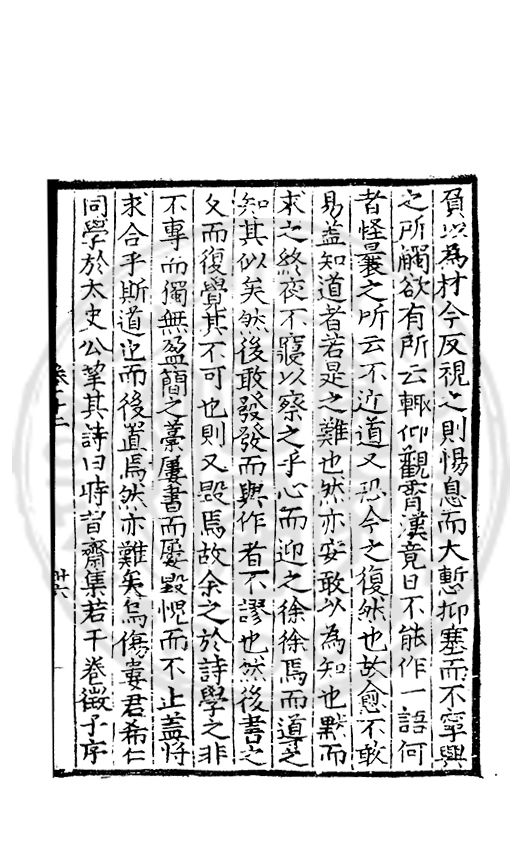 負以為材今反視之則惕息而大慙抑塞而不寧與
之所觸欲有所云輙仰觀霄漢竟日不能作一語何
者怪曩之所云不近道又恐今之復然也故愈不敢
易葢知道者若是之難也然亦安敢以為知也默而
求之終夜不寢以察之乎心而迎之徐徐焉而導之
知其似矣然後敢發發而與作者不謬也然後書之
夂而復覺其不可也則又毀焉故余之於詩學之非
不專而獨無盈簡之藁屢書而屢毀怳而不止蓋將
求合乎斯道也而後置焉然亦難矣烏傷婁君希仁
同學於太史公挈其詩曰時習齋集若干卷徵予序
卷十二
廿六